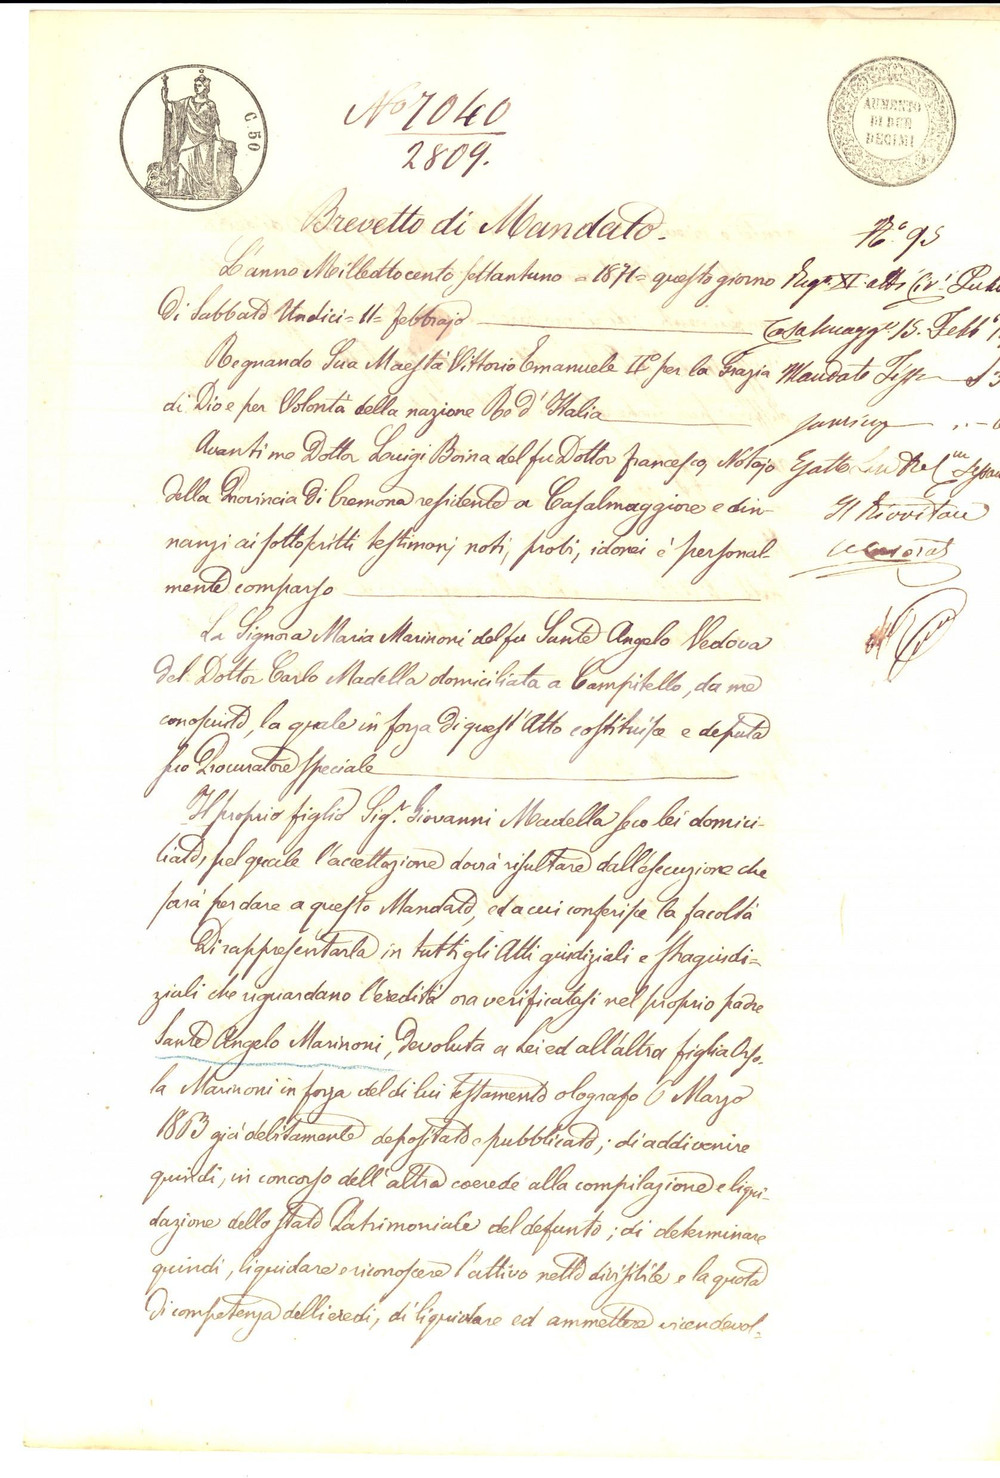 C. 50
AUMENTO
DI DUE
DECIMI
No 7040
2809.
Brevetto di Mandato.
L'anno Milleottocento settantuno = 1871 = questo giorno
di Sabbato Undici = 11 = febbrajo
Regnando Sua Maestà Vittorio Emanuele II° per la Grazia
di Dio e per Volontà della nazione Re d'Italia
Avanti me Dottor Luigi Boina del fu Dottor Francesco, Notajo
della Provincia di Cremona residente a Casalmaggiore e din-
nanzi ai sottoscritti testimonj noti, probi, idonei è personal-
mente comparsa
La Signora Maria Marinoni del fu Sante Angelo Vedova
del Dottor Carlo Madella domiciliata a Campitello, da me
conosciuta, la quale in forza di quest'Atto costituisce e deputa
suo Procuratore speciale
Il proprio figlio Sig.r Giovanni Madella seco lei domici-
liato, pel quale l'accettazione dovrà risultare dall'esecuzione che
sarà per dare a questo Mandato, ed a cui conferisce la facoltà
Di rappresentarla in tutti gli Atti giudiziali e stragiudi=
ziali che riguardano l'eredità ora verificatasi nel proprio padre
Sante Angelo Marinoni, devoluta a Lei ed all'altra figlia Orso-
la Marinoni in forza del di lui testamento olografo 6 Marzo
1863 già debitamente depositato e pubblicato; di addivenire
quindi, in concorso dell'altra coerede alla compilazione e liqui-
dazione dello stato Patrimoniale del defunto; di determinare
quindi, liquidare e riconoscere l'attivo netto divisibile e la quota
di competenza delli eredi, di liquidare ed ammettere vicendevol=
N.° 95
Casalmagg.e 15. Febb.°
Mandato
Il Ricevitore